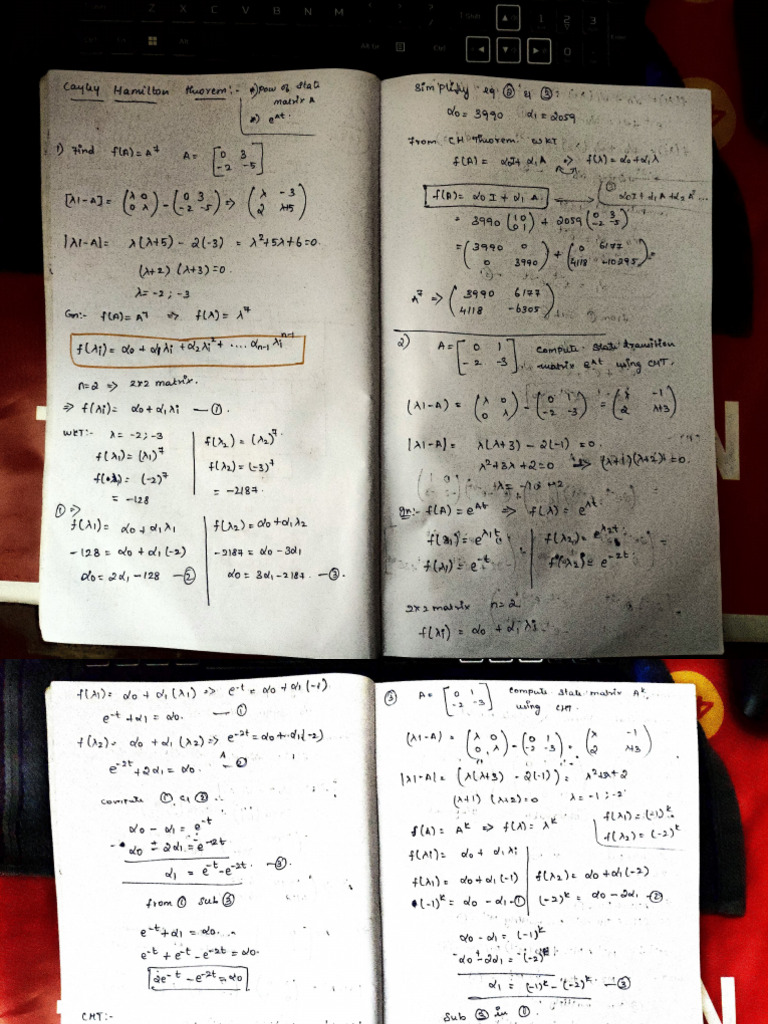 Cayley Hamilton theorem:- *) Pow of State
matrix A
*) e^At.
1) Find f(A)=A^7 A = [0 3; -2 -5]
[λI-A] = (λ 0; 0 λ) - (0 3; -2 -5) => (λ -3; 2 λ+5)
|λI-A| = λ(λ+5) - 2(-3) = λ²+5λ+6=0.
(λ+2) (λ+3)=0.
λ= -2 ; -3
Gn:- f(A)=A^7 => f(λ) = λ^7
f(λi) = α0 + α1λi + α2λi² + .... αn-1 λi^n-1
n=2 => 2x2 matrix.
=> f(λi)= α0 + α1λi — ①.
WKT:- λ = -2; -3
f(λ1) = (λ1)^7
f(λ1) = (-2)^7
= -128
f(λ2) = (λ2)^7.
f(λ2) = (-3)^7
= -2187.
① =>
f(λ1) = α0 + α1λ1
-128 = α0 + α1(-2)
α0 = 2α1 - 128 — ②
f(λ2) = α0 + α1λ2
-2187 = α0 - 3α1
α0 = 3α1 - 2187. — ③.
Simplify eq ② & ③:
α0 = 3990 α1 = 2059
From CH theorem WKT
f(A) = α0I + α1A => f(λ) = α0 + α1λ
f(A) = α0 I + α1 A. α0I + α1A + α2A² ...
= 3990 (1 0; 0 1) + 2059 (0 3; -2 -5)
= (3990 0; 0 3990) + (0 6177; 4118 -10295)
A^7 => (3990 6177; 4118 -6305)
2) A = [0 1; -2 -3] compute state transition
matrix e^At using CHT.
(λI-A) = (λ 0; 0 λ) - (0 1; -2 -3) = (λ -1; 2 λ+3)
|λI-A| = λ(λ+3) - 2(-1) = 0.
λ²+3λ+2=0 => (λ+1)(λ+2)=0.
gn:- f(A) = e^At => f(λ) = e^λt
f(λ1) = e^λ1t
f(λ1) = e^-t
f(λ2) = e^λ2t
f(λ2) = e^-2t
2x2 matrix n=2
f(λi) = α0 + α1 λi
f(λ1) = α0 + α1(λ1) => e^-t = α0 + α1(-1)
e^-t + α1 = α0. — ①
f(λ2) = α0 + α1(λ2) => e^-2t = α0 + α1(-2)
e^-2t + 2α1 = α0. — ②
compute ① & ②
α0 - α1 = e^-t
α0 - 2α1 = e^-2t
α1 = e^-t - e^-2t — ③.
from ① sub ③
e^-t + α1 = α0.
e^-t + e^-t - e^-2t = α0.
2e^-t - e^-2t = α0
CHT:-
③ A = [0 1; -2 -3] compute state matrix A^k
using CHT.
(λI-A) = (λ 0; 0 λ) - (0 1; -2 -3) = (λ -1; 2 λ+3)
|λI-A| = (λ(λ+3) - 2(-1)) = λ²+3λ+2
(λ+1) (λ+2)=0 λ = -1; -2
f(A) = A^k => f(λ) = λ^k
f(λ1) = (-1)^k
f(λ2) = (-2)^k
f(λi) = α0 + α1 λi
f(λ1) = α0 + α1(-1)
(-1)^k = α0 - α1 — ①
f(λ2) = α0 + α1(-2)
(-2)^k = α0 - 2α1 — ②
α0 - α1 = (-1)^k
α0 - 2α1 = (-2)^k
α1 = (-1)^k - (-2)^k — ③
Sub ③ in ①.